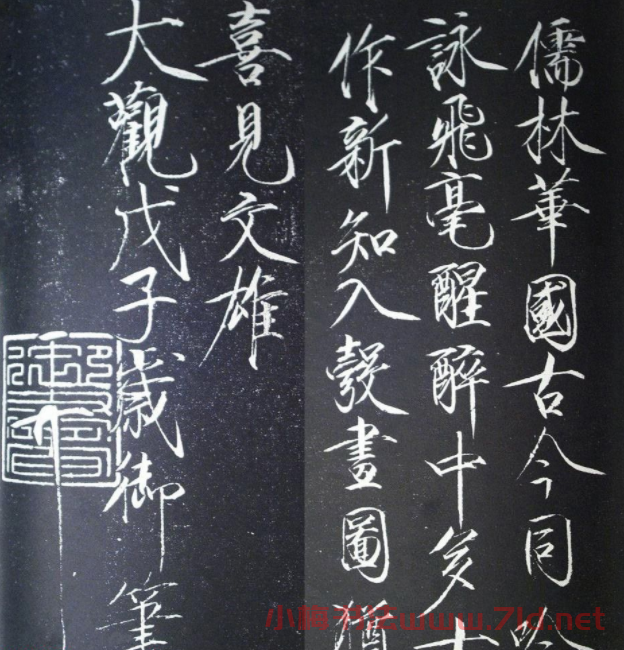 儒林華國古今同吟
詠飛毫醒醉中多士
作新知入彀畫圖猶
喜見文雄
大觀戊子歲御筆
小梅书法www.7ld.net